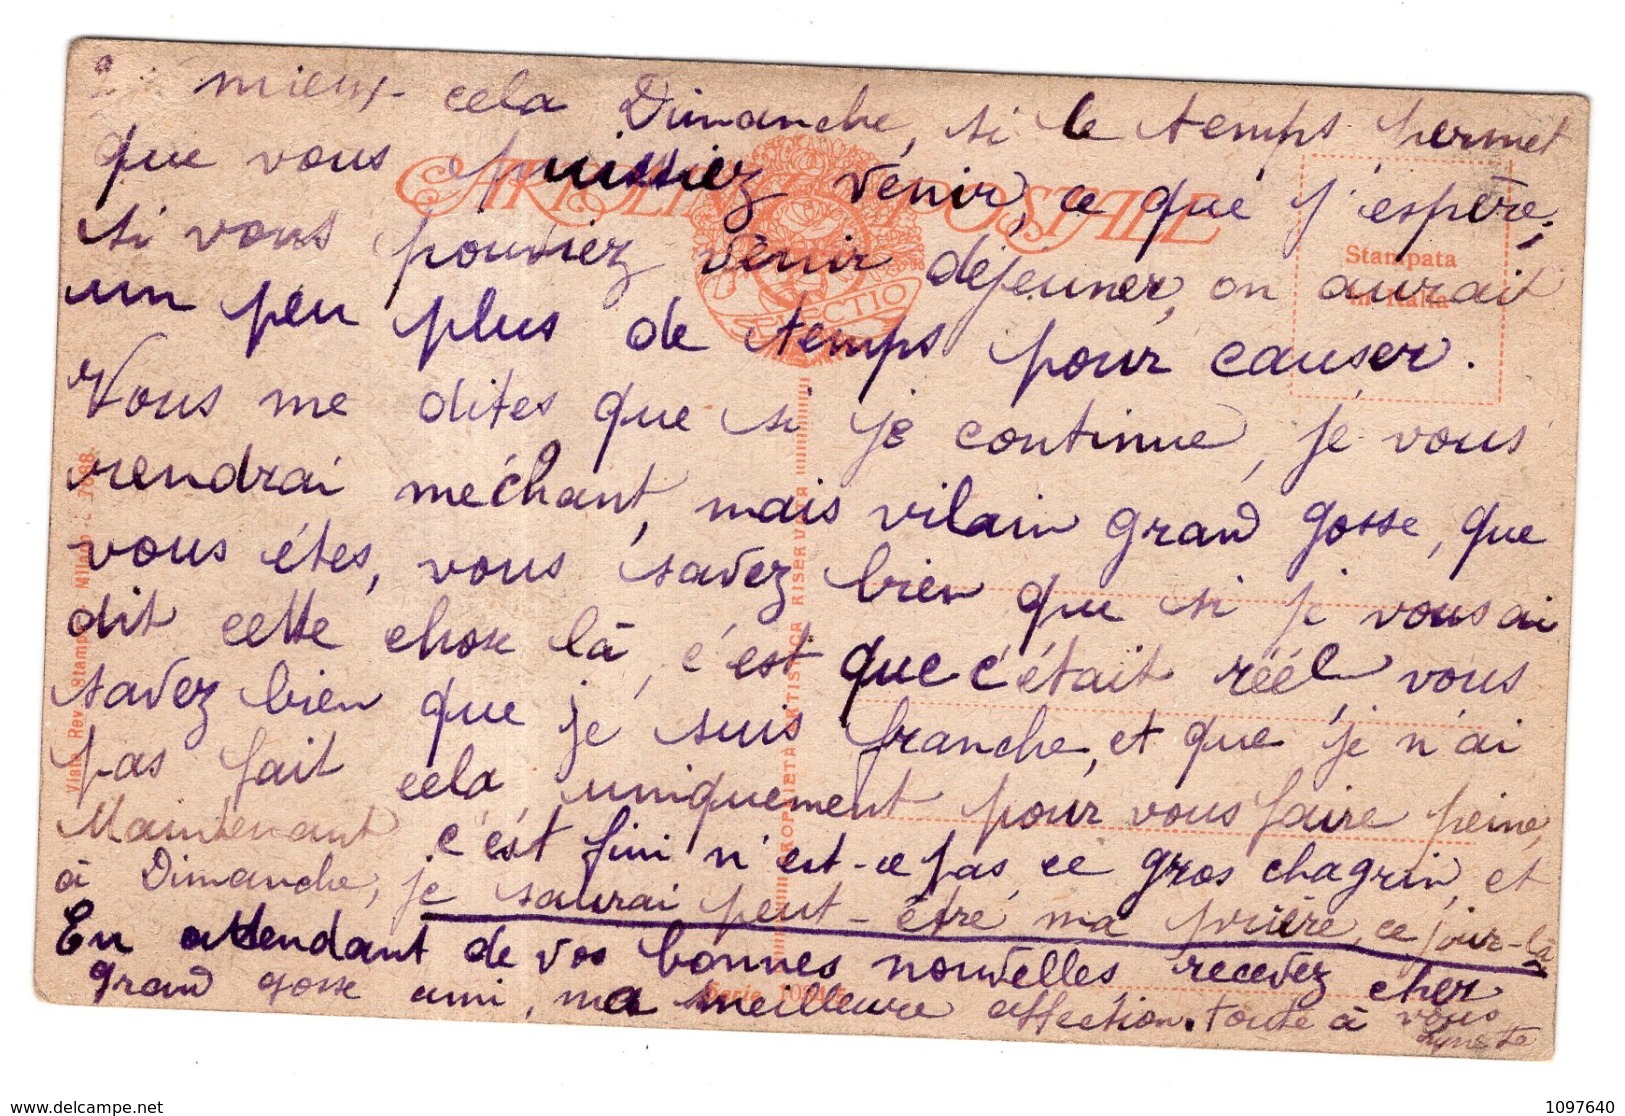 2
mieux cela Dimanche, si le temps permet
que vous puissiez venir, ce que j'espère;
si vous pouviez venir déjeuner, on aurait
un peu plus de temps pour causer.
Vous me dites que si je continue, je vous
rendrai méchant, mais vilain grand gosse, que
vous êtes, vous savez bien que si je vous ai
dit cette chose là, c'est que c'était réel, vous
savez bien que je suis franche, et que je n'ai
pas fait cela, uniquement pour vous faire peine,
Maintenant c'est fini n'est-ce pas, ce gros chagrin, et
à Dimanche, je saurai peut-être ma prière, ce jour-là
En attendant de vos bonnes nouvelles recevez cher
grand gosse ami, ma meilleure affection. Toute à vous
CARTOLINA POSTALE
SELECTIO
Stampata
in Italia
PROPRIETÀ ARTISTICA RISERVATA
Visto Rev. Stampa Milano
7688.
Serie
delcampe.net
1097640